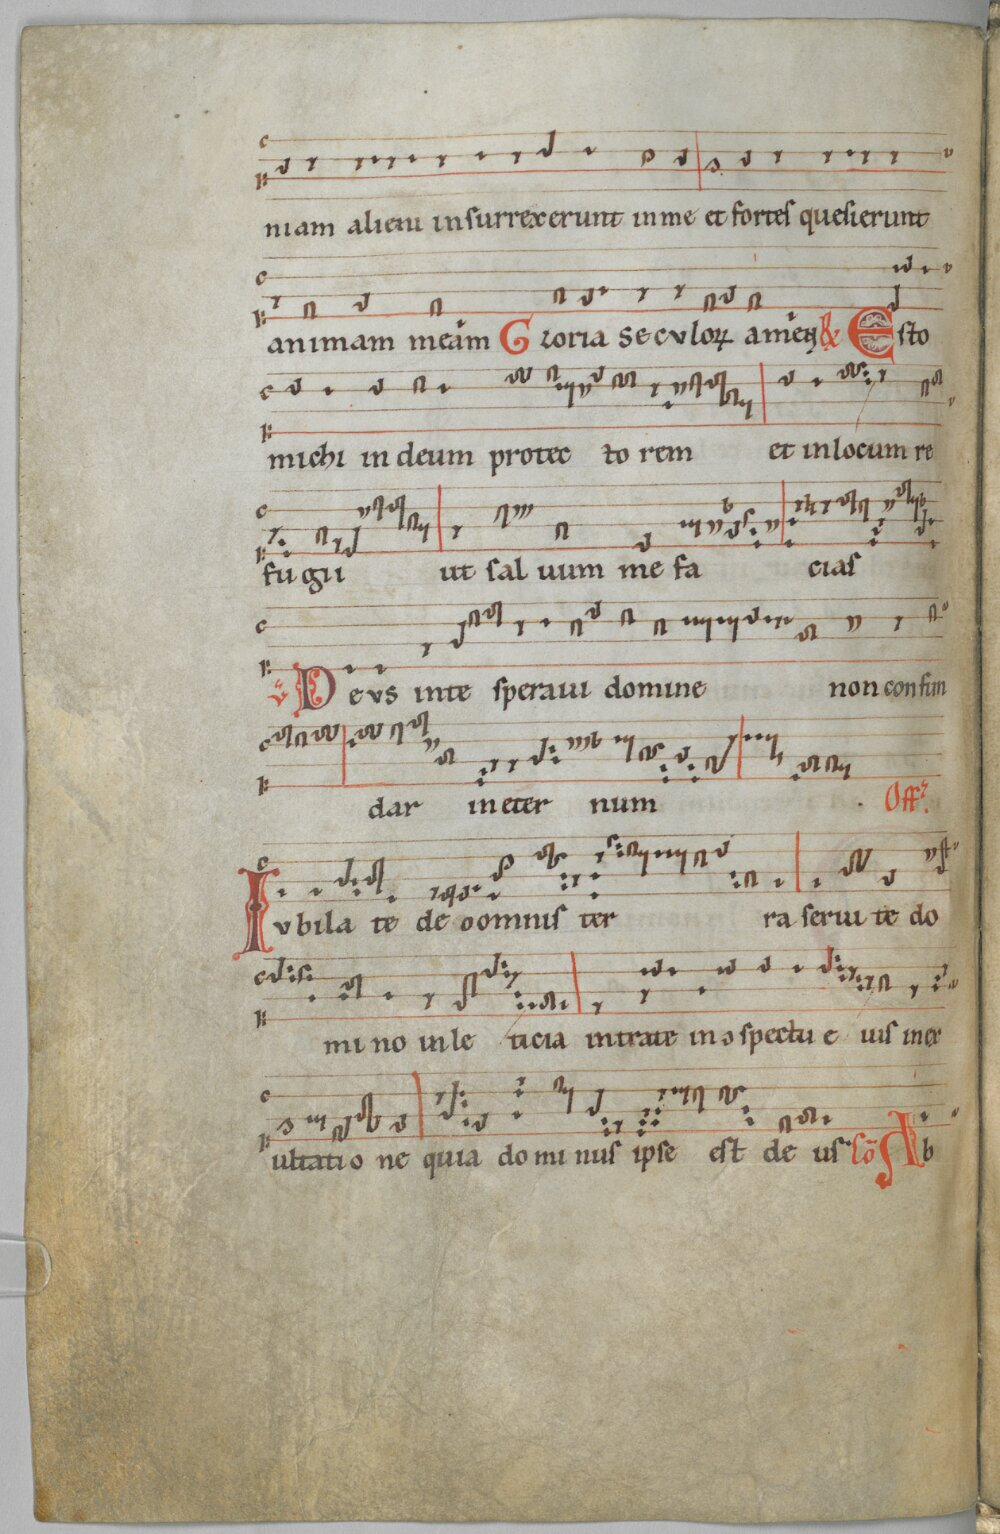 niam alieni insurrexerunt inme et fortes quesierunt
animam meam Gloria seculoꝝ amen & Esto
michi indeum protec to rem et inlocum re
fugii ut sal uum me fa cias
Deus inte speraui domine non confun
dar ineter num Off
Iubila te deo omnis ter ra serui te do
mi no inle ticia intrate in ɔspectu e ius inex
ultatio ne quia do mi nus ipse est de us Cō Ab